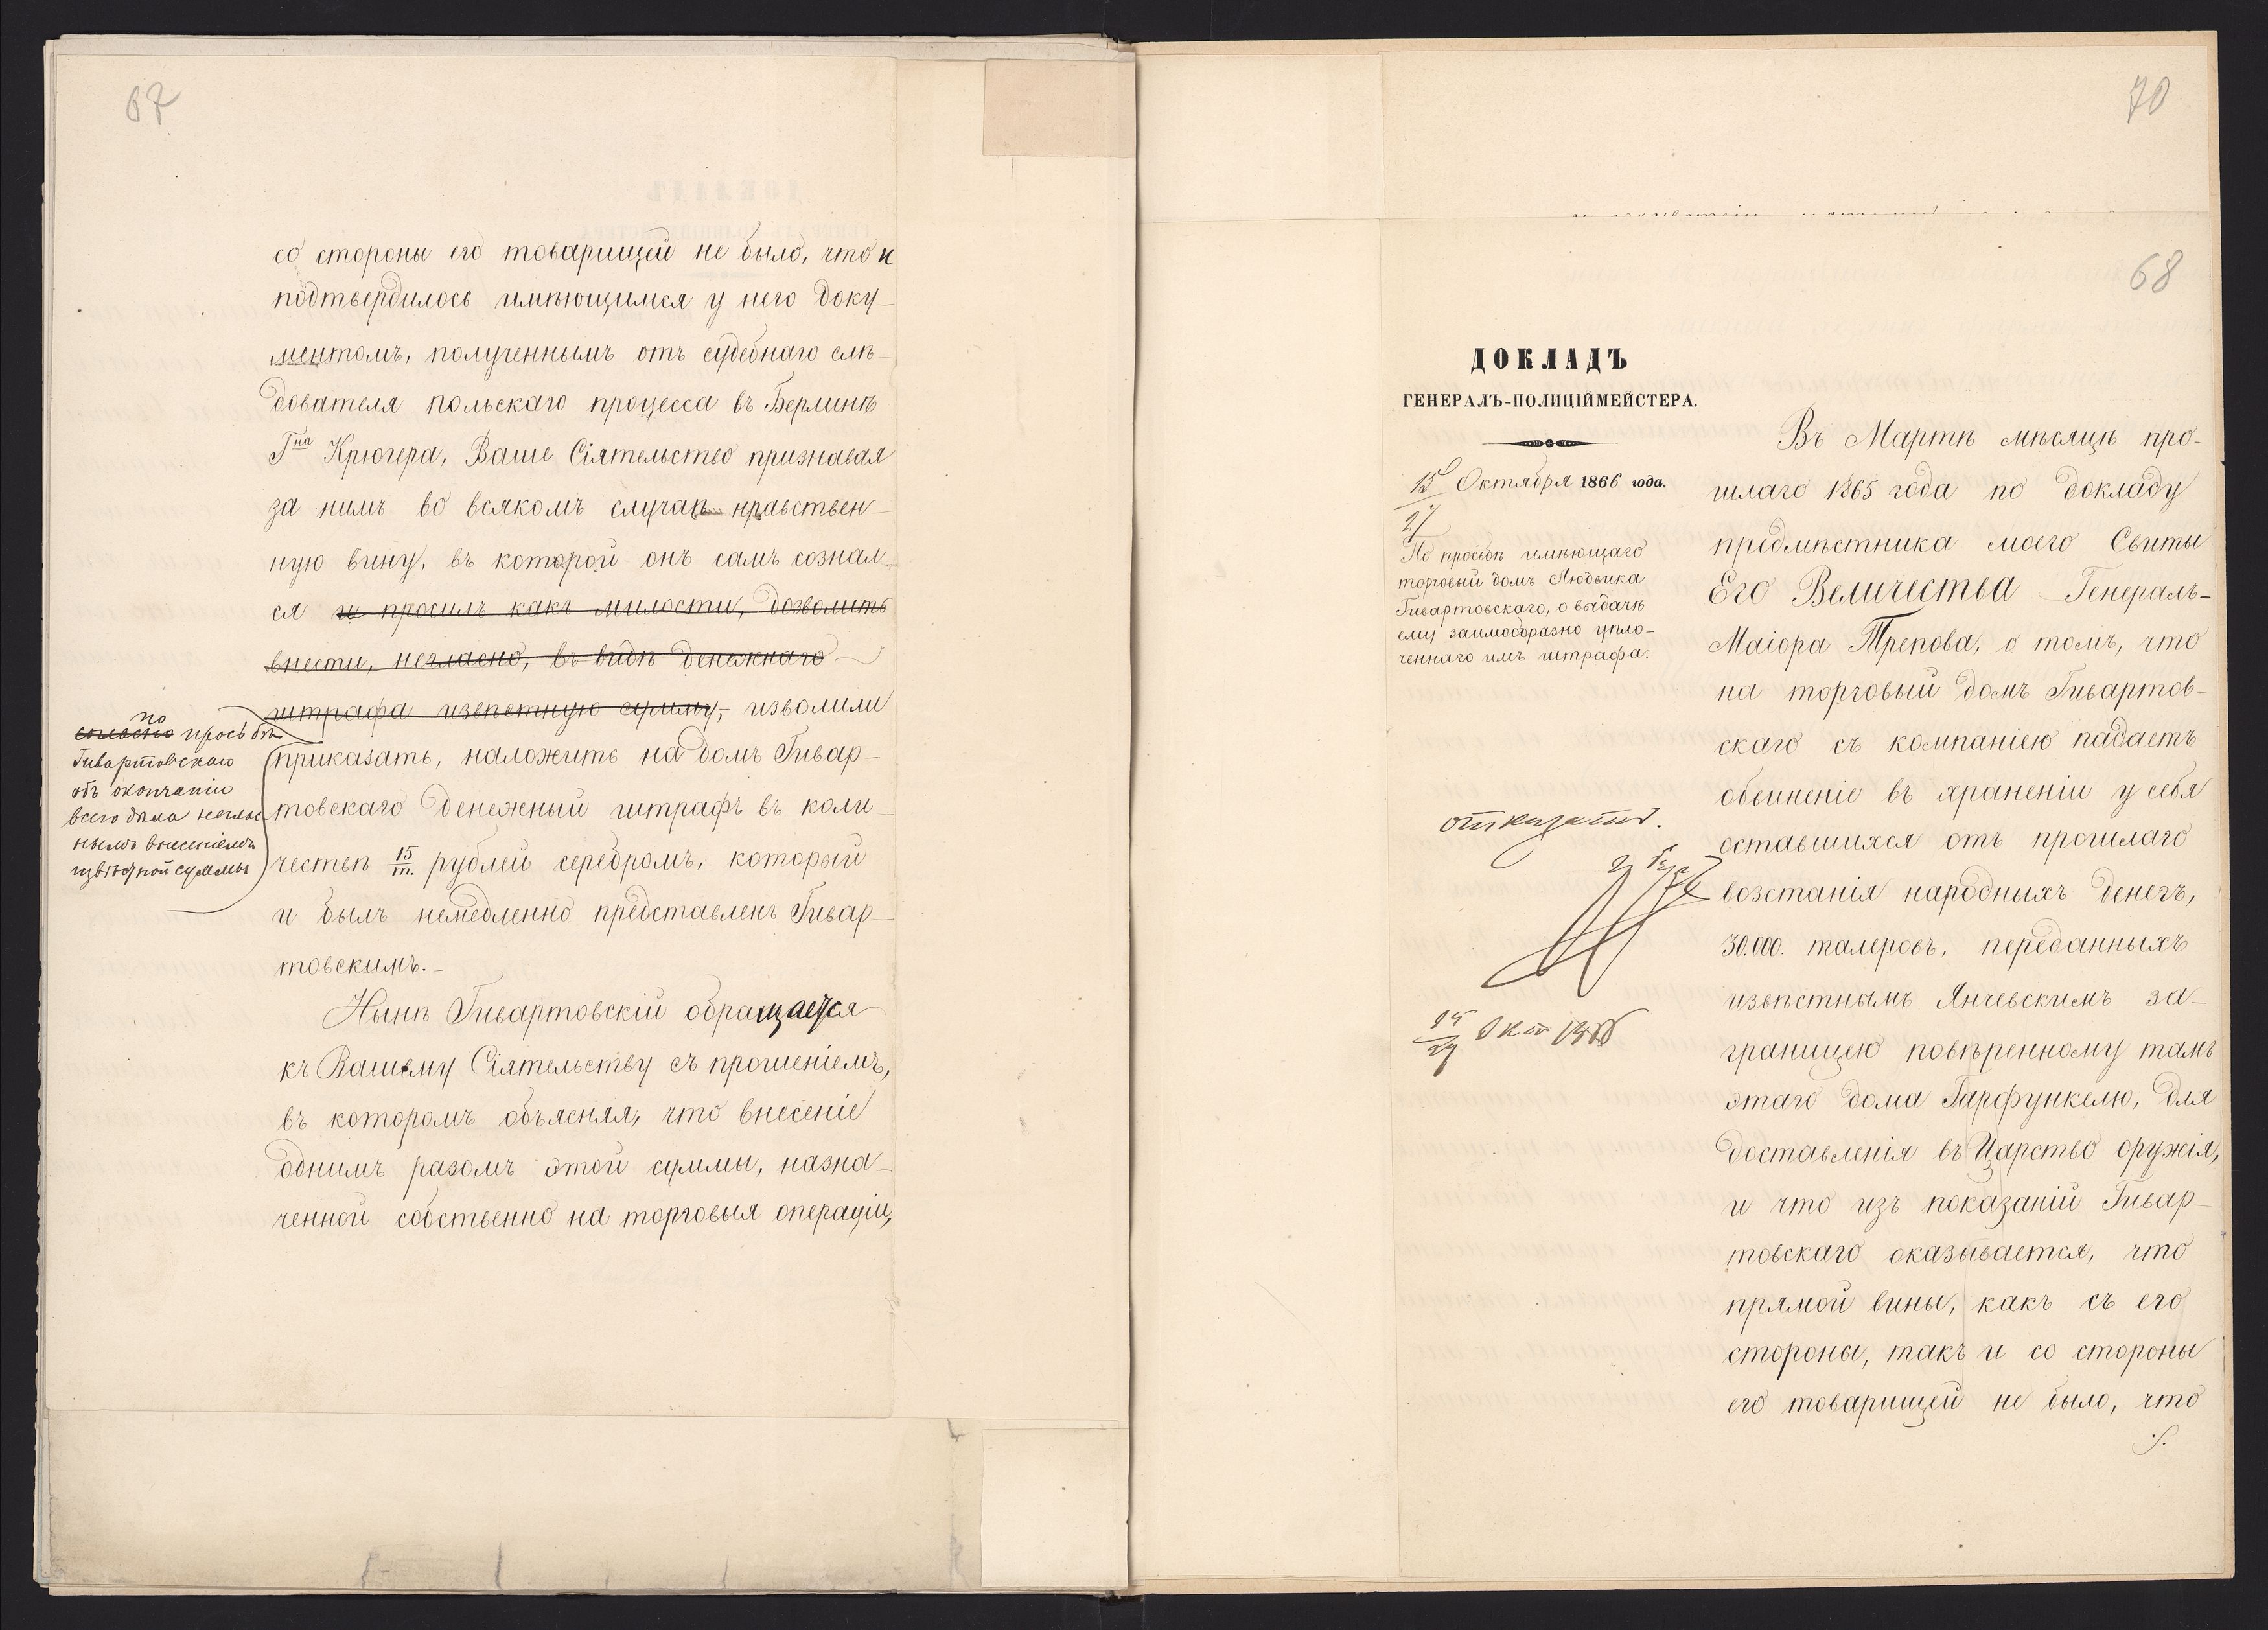 67
со стороны его товарищей не было, что и
подтвердилось имѣющимся у него доку-
ментомъ, полученнымъ отъ судебнаго слѣ-
дователя польскаго процесса въ Берлинѣ
Гна Крюгера, Ваше Сіятельство признавая
за нимъ во всякомъ случаѣ нравствен-
ную вину, въ которой онъ самъ сознал-
ся и просилъ какъ милости, дозволить
внести, негласно, въ видѣ денежнаго
штрафа извѣстную сумму, изволили
приказать, наложить на домъ Гивар-
товскаго денежный штрафъ въ коли-
чествѣ 15/т. рублей серебромъ, который
и былъ немедленно представленъ Гивар-
товскимъ.-
Нынѣ Гивартовскій обращается
къ Вашему Сіятельству съ прошеніемъ,
въ которомъ объясняя, что внесеніе
однимъ разомъ этой суммы, назна-
ченной собственно на торговыя операціи,
по
просьбѣ
Гивартовскаго
объ окончаніи
всего дѣла неглас-
нымъ внесеніемъ
извѣстной суммы
70
68
ДОКЛАДЪ
ГЕНЕРАЛЪ-ПОЛИЦІЙМЕЙСТЕРА.
15/27 Октября 1866 года.
По просьбѣ имѣющаго
торговый домъ Людвика
Гивартовскаго, о выдачѣ
ему заимообразно упло-
ченнаго имъ штрафа.
отказать.
15/27 Окт 1866
Въ Мартѣ мѣсяцѣ про-
шлаго 1865 года по докладу
предмѣстника моего Свиты
Его Величества Генералъ-
Маіора Трепова, о томъ, что
на торговый домъ Гивартов-
скаго съ компаніею падаетъ
обвиненіе въ храненіи у себя
оставшихся отъ прошлаго
возстанія народныхъ денегъ,
30.000. талеровъ, переданныхъ
извѣстнымъ Янчевскимъ за-
границею повѣренному тамъ
этаго дома Гарфункелю, для
доставленія въ Царство оружія,
и что изъ показаній Гивар-
товскаго оказывается, что
прямой вины, какъ съ его
стороны, такъ и со стороны
его товарищей не было, что